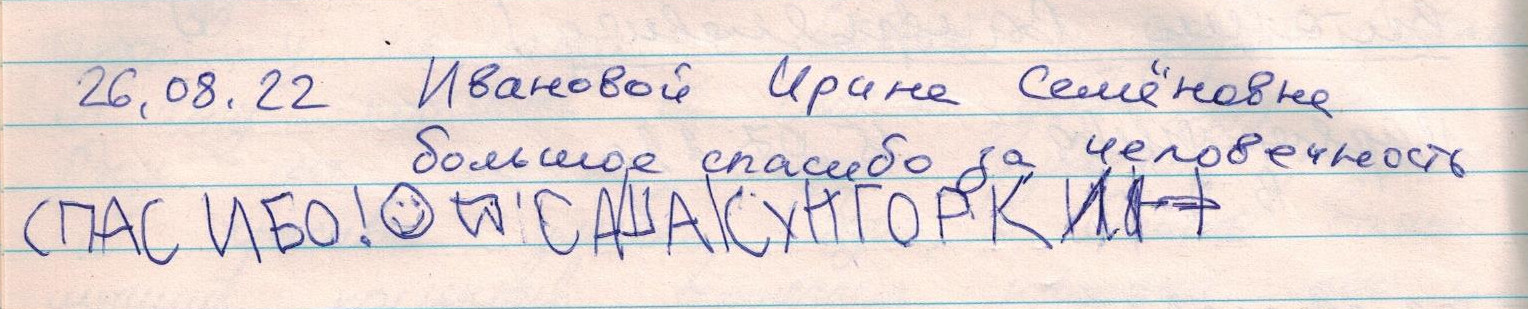 26.08.22 Ивановой Ирине Семёновне
большое спасибо за человечность
СПАСИБО! САША СУНГОРКИН